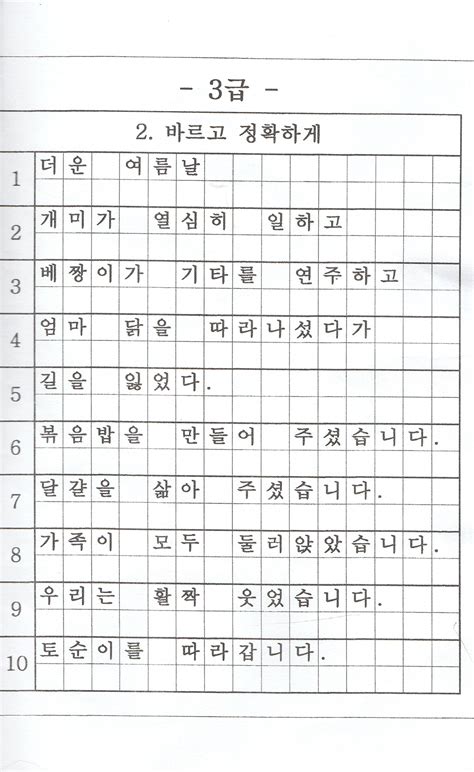 - 3급 -
2. 바르고 정확하게
1 더운 여름날
2 개미가 열심히 일하고
3 베짱이가 기타를 연주하고
4 엄마 닭을 따라나섰다가
5 길을 잃었다.
6 볶음밥을 만들어 주셨습니다.
7 달걀을 삶아 주셨습니다.
8 가족이 모두 둘러앉았습니다.
9 우리는 활짝 웃었습니다.
10 토순이를 따라갑니다.